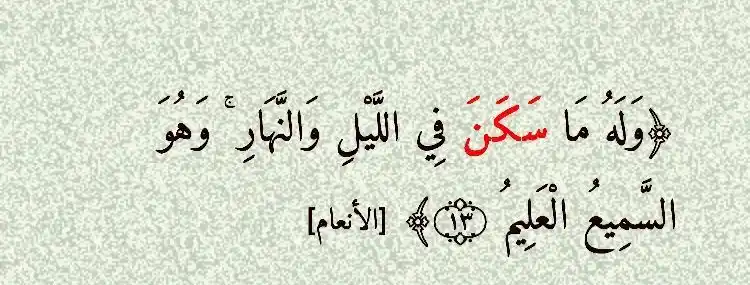 ﴿وَلَهُ مَا سَكَنَ فِي اللَّيْلِ وَالنَّهَارِ ۚ وَهُوَ
السَّمِيعُ الْعَلِيمُ ۝١٣﴾ [الأنعام]